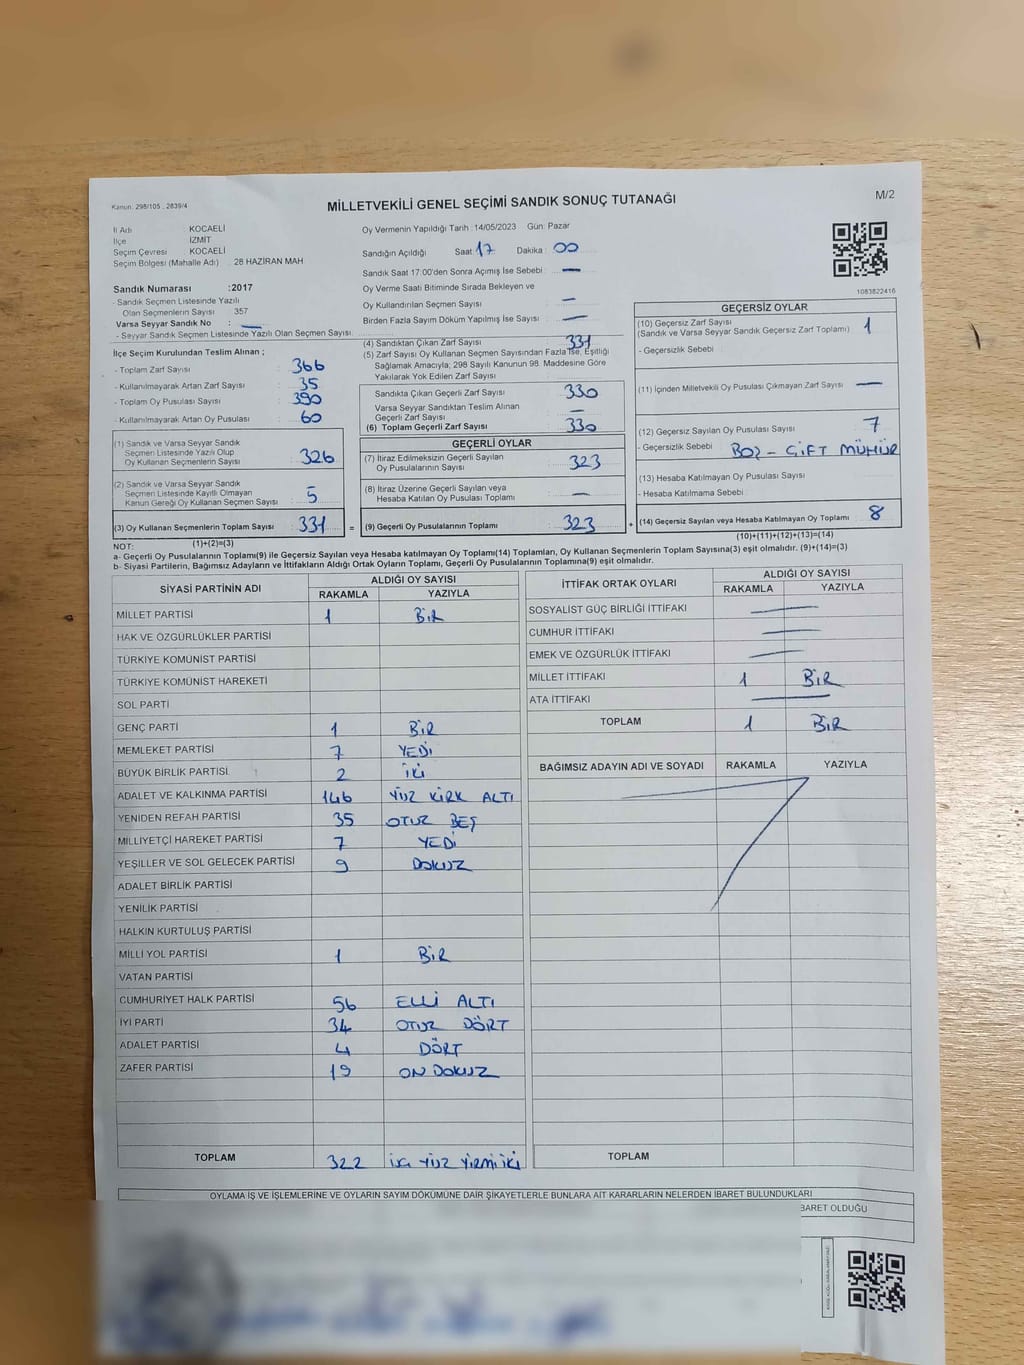 Kanun: 298/105 , 2839/4
MİLLETVEKİLİ GENEL SEÇİMİ SANDIK SONUÇ TUTANAĞI
M/2
İl Adı : KOCAELİ
İlçe : İZMİT
Seçim Çevresi : KOCAELİ
Seçim Bölgesi (Mahalle Adı) : 28 HAZİRAN MAH
Sandık Numarası :2017
- Sandık Seçmen Listesinde Yazılı
Olan Seçmenlerin Sayısı 357
Varsa Seyyar Sandık No : —
- Seyyar Sandık Seçmen Listesinde Yazılı Olan Seçmen Sayısı:
İlçe Seçim Kurulundan Teslim Alınan ;
- Toplam Zarf Sayısı : 366
- Kullanılmayarak Artan Zarf Sayısı : 35
- Toplam Oy Pusulası Sayısı : 390
- Kullanılmayarak Artan Oy Pusulası : 60
(1) Sandık ve Varsa Seyyar Sandık
Seçmen Listesinde Yazılı Olup
Oy Kullanan Seçmenlerin Sayısı : 326
(2) Sandık ve Varsa Seyyar Sandık
Seçmen Listesinde Kayıtlı Olmayan
Kanun Gereği Oy Kullanan Seçmen Sayısı : 5
(3) Oy Kullanan Seçmenlerin Toplam Sayısı : 331 =
Oy Vermenin Yapıldığı Tarih : 14/05/2023 Gün: Pazar
Sandığın Açıldığı Saat 17 Dakika : 00
Sandık Saat 17:00'den Sonra Açımış İse Sebebi : —
Oy Verme Saati Bitiminde Sırada Bekleyen ve
Oy Kullandırılan Seçmen Sayısı : —
Birden Fazla Sayım Döküm Yapılmış İse Sayısı : —
(4) Sandıktan Çıkan Zarf Sayısı : 331
(5) Zarf Sayısı Oy Kullanan Seçmen Sayısından Fazla İse, Eşitliği
Sağlamak Amacıyla; 298 Sayılı Kanunun 98. Maddesine Göre
Yakılarak Yok Edilen Zarf Sayısı :
Sandıkta Çıkan Geçerli Zarf Sayısı : 330
Varsa Seyyar Sandıktan Teslim Alınan
Geçerli Zarf Sayısı : —
(6) Toplam Geçerli Zarf Sayısı : 330
GEÇERLİ OYLAR
(7) İtiraz Edilmeksizin Geçerli Sayılan
Oy Pusulalarının Sayısı : 323
(8) İtiraz Üzerine Geçerli Sayılan veya
Hesaba Katılan Oy Pusulası Toplamı : —
(9) Geçerli Oy Pusulalarının Toplamı : 323 +
1083822416
GEÇERSİZ OYLAR
(10) Geçersiz Zarf Sayısı
(Sandık ve Varsa Seyyar Sandık Geçersiz Zarf Toplamı) : 1
- Geçersizlik Sebebi :
(11) İçinden Milletvekili Oy Pusulası Çıkmayan Zarf Sayısı : —
(12) Geçersiz Sayılan Oy Pusulası Sayısı : 7
- Geçersizlik Sebebi : BOŞ - ÇİFT MÜHÜR
(13) Hesaba Katılmayan Oy Pusulası Sayısı :
- Hesaba Katılmama Sebebi :
(14) Geçersiz Sayılan veya Hesaba Katılmayan Oy Toplamı : 8
NOT: (1)+(2)=(3) (10)+(11)+(12)+(13)=(14)
a- Geçerli Oy Pusulalarının Toplamı(9) ile Geçersiz Sayılan veya Hesaba katılmayan Oy Toplamı(14) Toplamları, Oy Kullanan Seçmenlerin Toplam Sayısına(3) eşit olmalıdır. (9)+(14)=(3)
b- Siyasi Partilerin, Bağımsız Adayların ve İttifakların Aldığı Ortak Oyların Toplamı, Geçerli Oy Pusulalarının Toplamına(9) eşit olmalıdır.
SİYASİ PARTİNİN ADI ALDIĞI OY SAYISI
RAKAMLA YAZIYLA
MİLLET PARTİSİ 1 BİR
HAK VE ÖZGÜRLÜKLER PARTİSİ
TÜRKİYE KOMÜNİST PARTİSİ
TÜRKİYE KOMÜNİST HAREKETİ
SOL PARTİ
GENÇ PARTİ 1 BİR
MEMLEKET PARTİSİ 7 YEDİ
BÜYÜK BİRLİK PARTİSİ 2 İKİ
ADALET VE KALKINMA PARTİSİ 146 YÜZ KIRK ALTI
YENİDEN REFAH PARTİSİ 35 OTUZ BEŞ
MİLLİYETÇİ HAREKET PARTİSİ 7 YEDİ
YEŞİLLER VE SOL GELECEK PARTİSİ 9 DOKUZ
ADALET BİRLİK PARTİSİ
YENİLİK PARTİSİ
HALKIN KURTULUŞ PARTİSİ
MİLLİ YOL PARTİSİ 1 BİR
VATAN PARTİSİ
CUMHURİYET HALK PARTİSİ 56 ELLİ ALTI
İYİ PARTİ 34 OTUZ DÖRT
ADALET PARTİSİ 4 DÖRT
ZAFER PARTİSİ 19 ON DOKUZ
TOPLAM 322 YÜZ YİRMİ İKİ
İTTİFAK ORTAK OYLARI ALDIĞI OY SAYISI
RAKAMLA YAZIYLA
SOSYALİST GÜÇ BİRLİĞİ İTTİFAKI —
CUMHUR İTTİFAKI —
EMEK VE ÖZGÜRLÜK İTTİFAKI —
MİLLET İTTİFAKI 1 BİR
ATA İTTİFAKI —
TOPLAM 1 BİR
BAĞIMSIZ ADAYIN ADI VE SOYADI RAKAMLA YAZIYLA
TOPLAM
OYLAMA İŞ VE İŞLEMLERİNE VE OYLARIN SAYIM DÖKÜMÜNE DAİR ŞİKAYETLERLE BUNLARA AİT KARARLARIN NELERDEN İBARET BULUNDUKLARI
BARET OLDUĞU